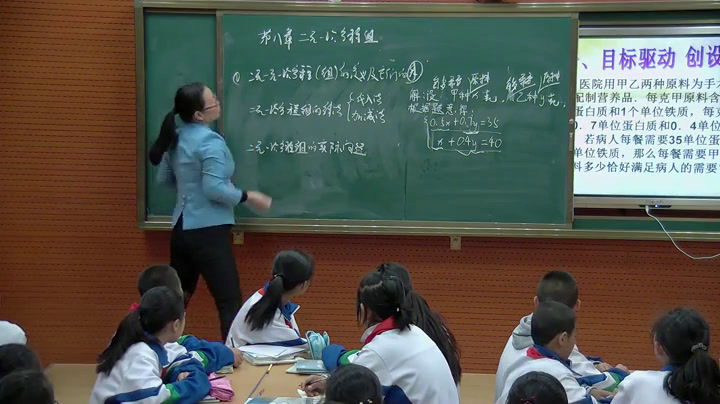 第八章 二元一次方程组
二元一次方程(组)的定义及它们的解
二元一次方程组的解法
代入法
加减法
二元一次方程组的实际问题
解:设
根据题意,得
0.5x+0.7y=35
x+0.4y=40
、目标驱动 创设
医院用甲乙两种原料为手
配制营养品.每克甲原料含
蛋白质和1个单位铁质,每克
0.7单位蛋白质和0.4单位
若病人每餐需要35单位蛋
单位铁质,那么每餐需要甲
料多少恰好满足病人的需要